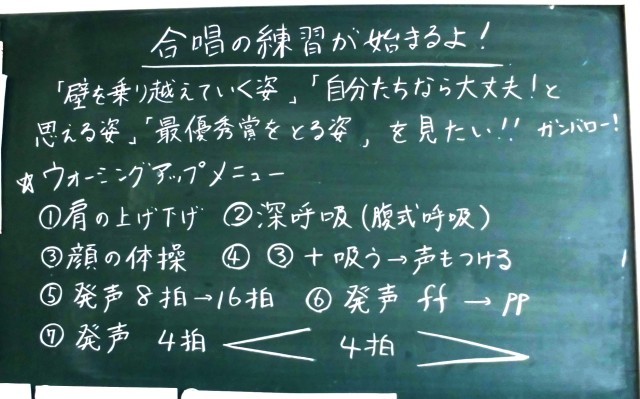 合唱の練習が始まるよ！
「壁を乗り越えていく姿」「自分たちなら大丈夫！と
思える姿」「最優秀賞をとる姿」を見たい!! ガンバロー！
☆ウォーミングアップメニュー
①肩の上げ下げ ②深呼吸(腹式呼吸)
③顔の体操 ④ ③＋吸う→声もつける
⑤発声 8拍→16拍 ⑥発声 ff→pp
⑦発声 4拍 < 4拍 >